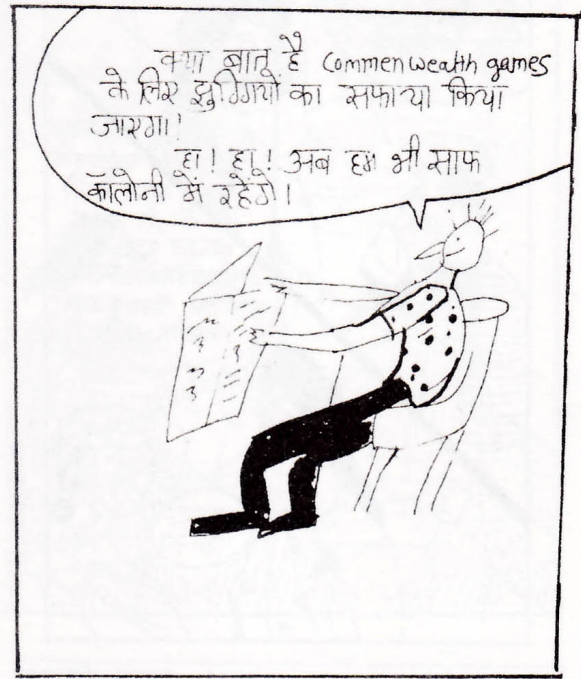 क्या बात है Commenwealth games
के लिए झुग्गियों का सफाया किया
जाएगा!
हा! हा! अब हम भी साफ
कॉलोनी में रहेंगे।